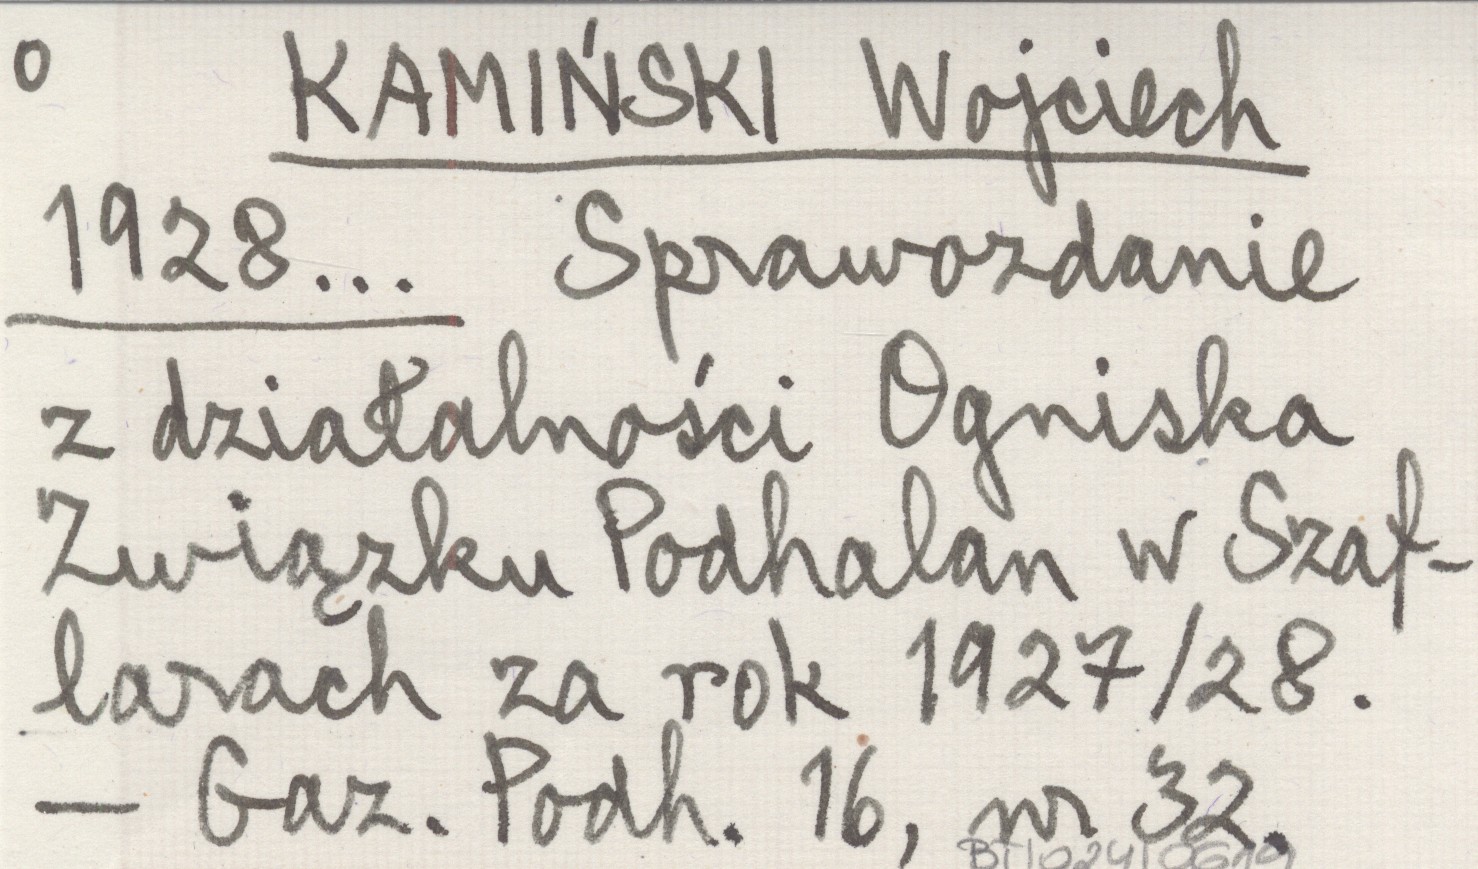 o KAMIŃSKI Wojciech
1928... Sprawozdanie
z działalności Ogniska
Związku Podhalan w Szaf-
larach za rok 1927/28.
— Gaz. Podh. 16, nr 32.